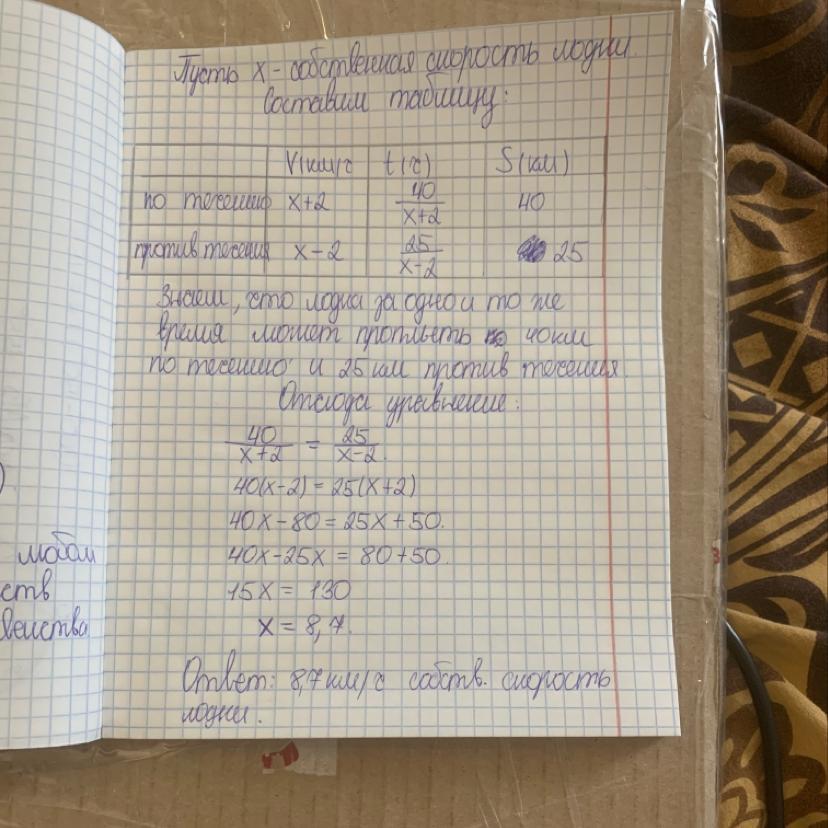 Пусть x - собственная скорость лодки.
Составим таблицу:
V(км/ч t(ч) S(км)
по течению x+2 40/x+2 40
против течения x-2 25/x-2 25
Знаем, что лодка за одно и то же
время может проплыть по 40 км
по течению и 25 км против течения
Отсюда уравнение:
40/x+2 = 25/x-2.
40(x-2) = 25(x+2)
40x-80=25x+50.
40x-25x = 80+50.
15x = 130
x = 8,7.
Ответ: 8,7 км/ч собств. скорость
лодки.
)
любом
ств
венства